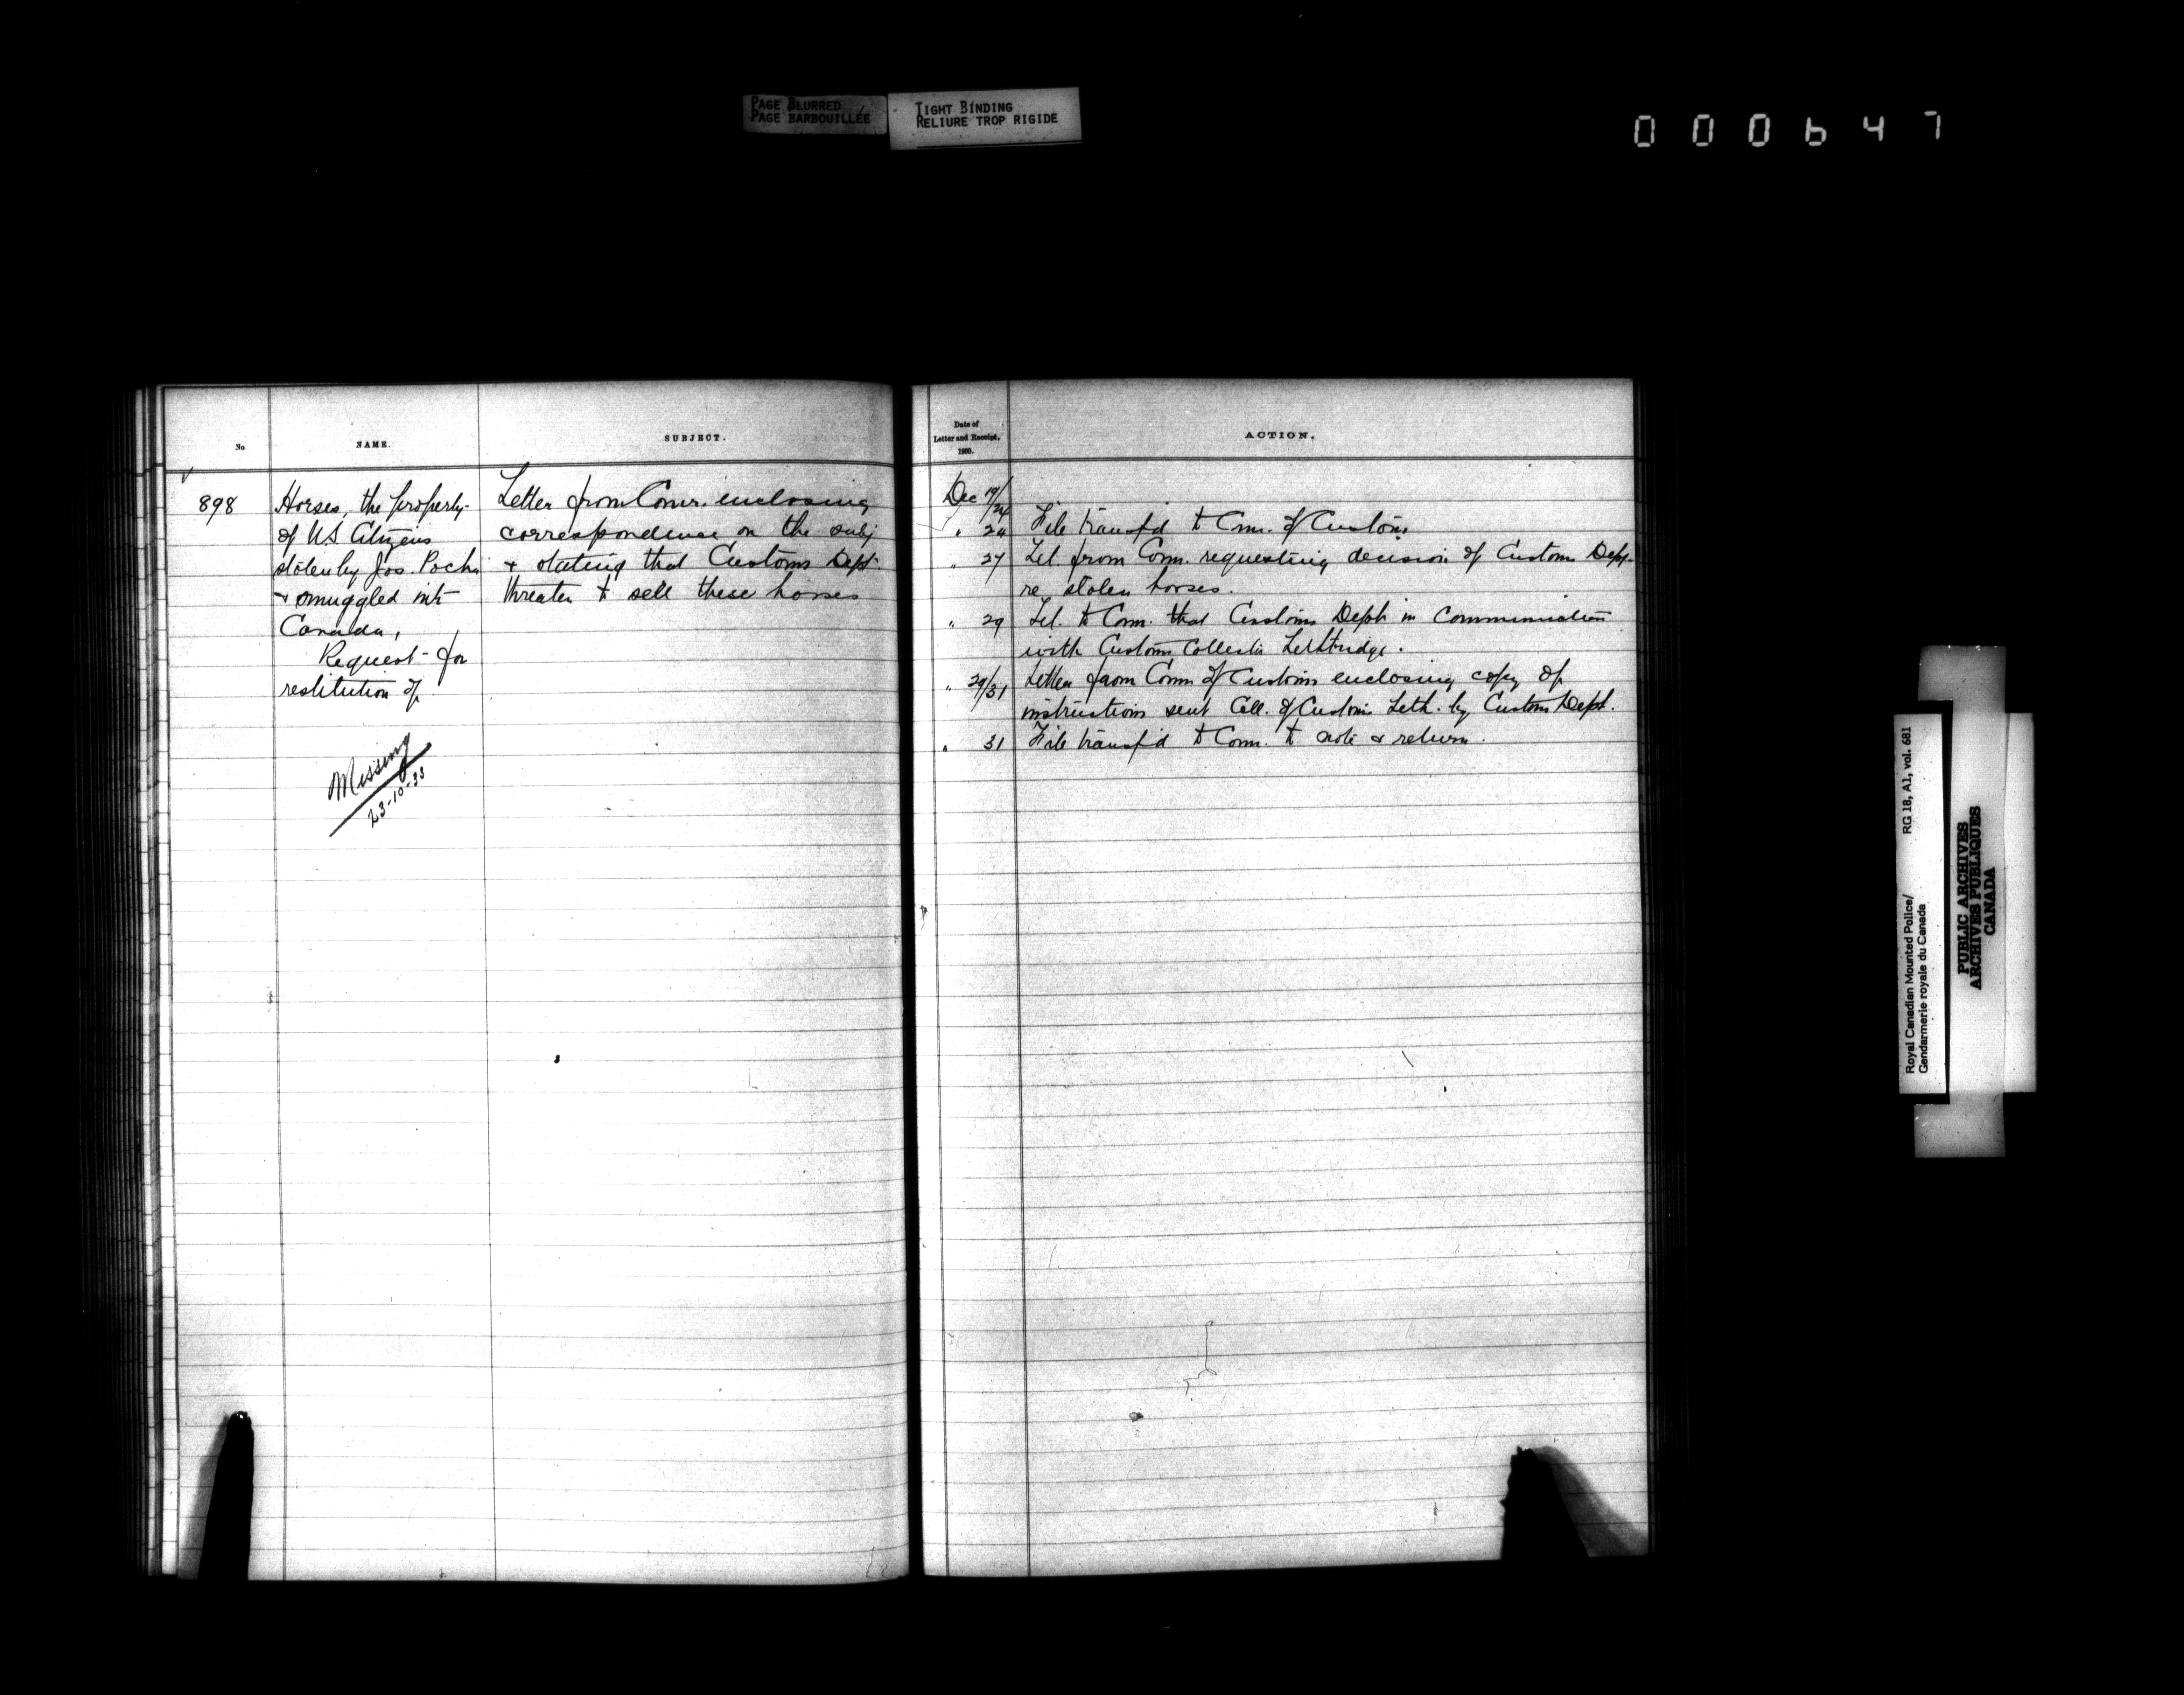 PAGE BLURRED
PAGE BARBOUILLÉE
TIGHT BINDING
RELIURE TROP RIGIDE
000647
No
NAME.
SUBJECT.
898
Horses, the property
of U.S. Citizens
stolen by Jos. Poche
& smuggled into
Canada,
Request for
restitution of
Missing
23-10-33
Letter from Comr. enclosing
correspondence on the subj
& stating that Customs Dept.
threaten to sell these horses
Date of
Letter and Receipt,
1900.
ACTION.
Dec 19/24
" 24 File transf'd to Com. of Customs
" 27 Let. from Com. requesting decision of Customs Dept.
re stolen horses.
" 29 Let. to Com. that Customs Dept. in communication
with Customs Collector Lethbridge.
" 29/31 Letter from Comr of Customs enclosing copy of
instructions sent Coll. of Customs Leth. by Customs Dept.
" 31 File transf'd to Com. to note & return.
Royal Canadian Mounted Police/ RG 18, A1, vol. 681
Gendarmerie royale du Canada
PUBLIC ARCHIVES
ARCHIVES PUBLIQUES
CANADA